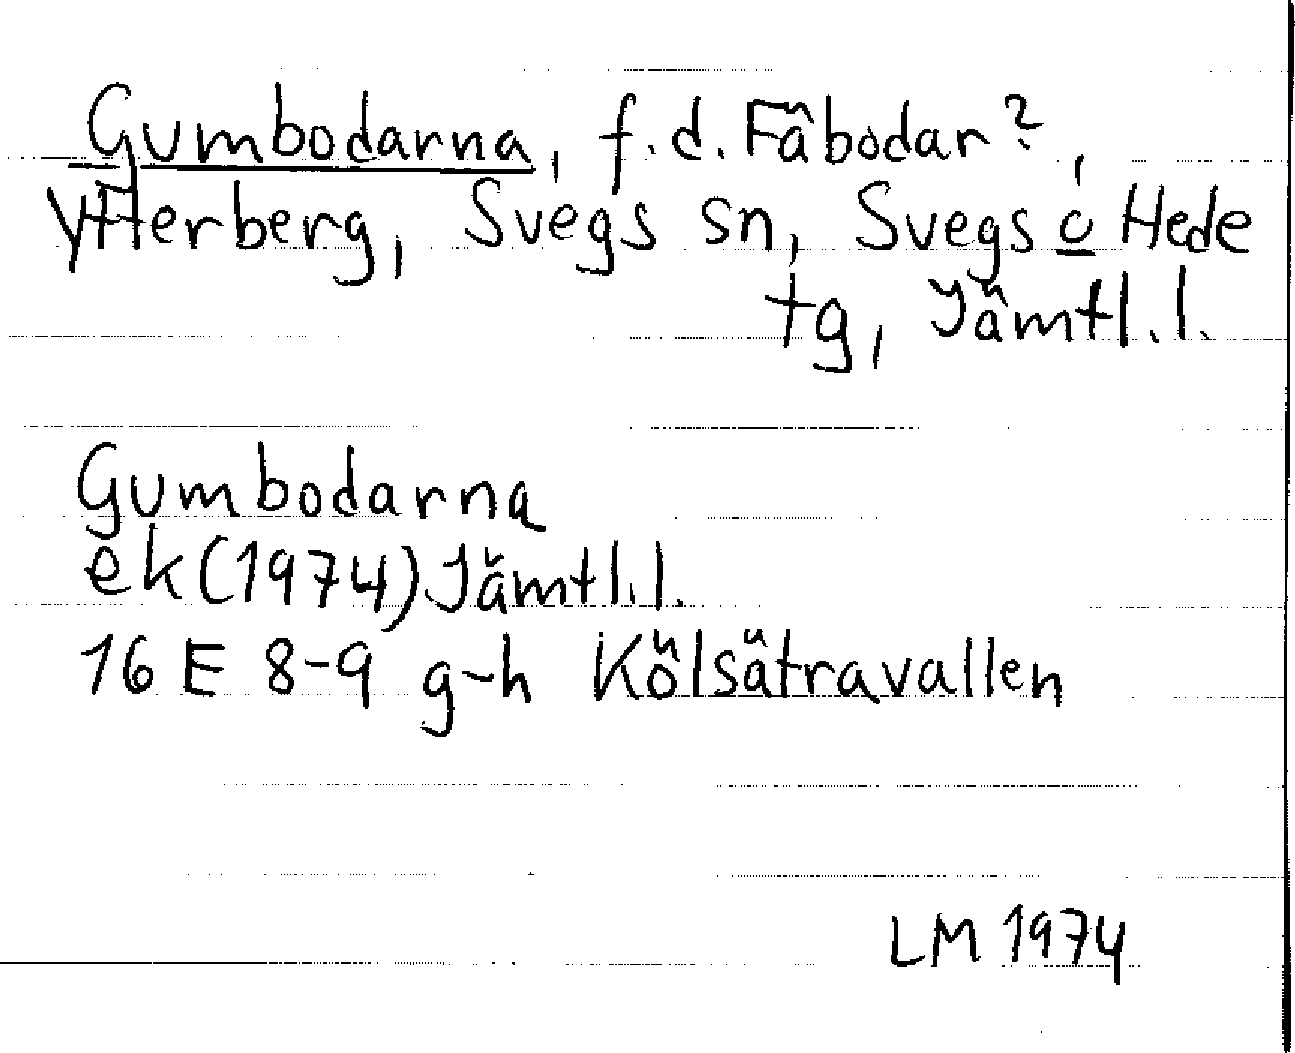 Gumbodarna, f.d. Fäbodar?,
Ytterberg, Svegs sn, Svegs o Hede
tg, Jämtl.l.
Gumbodarna
ek(1974) Jämtl.l.
16 E 8-9 g-h Kölsätravallen
LM 1974